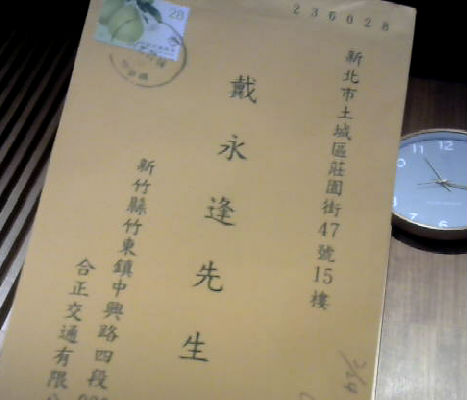 236028
新北市土城區莊園街47號15樓
戴永逢先生
新竹縣竹東鎮中興路四段
合正交通有限
28
11
12
1
8
7
6
5